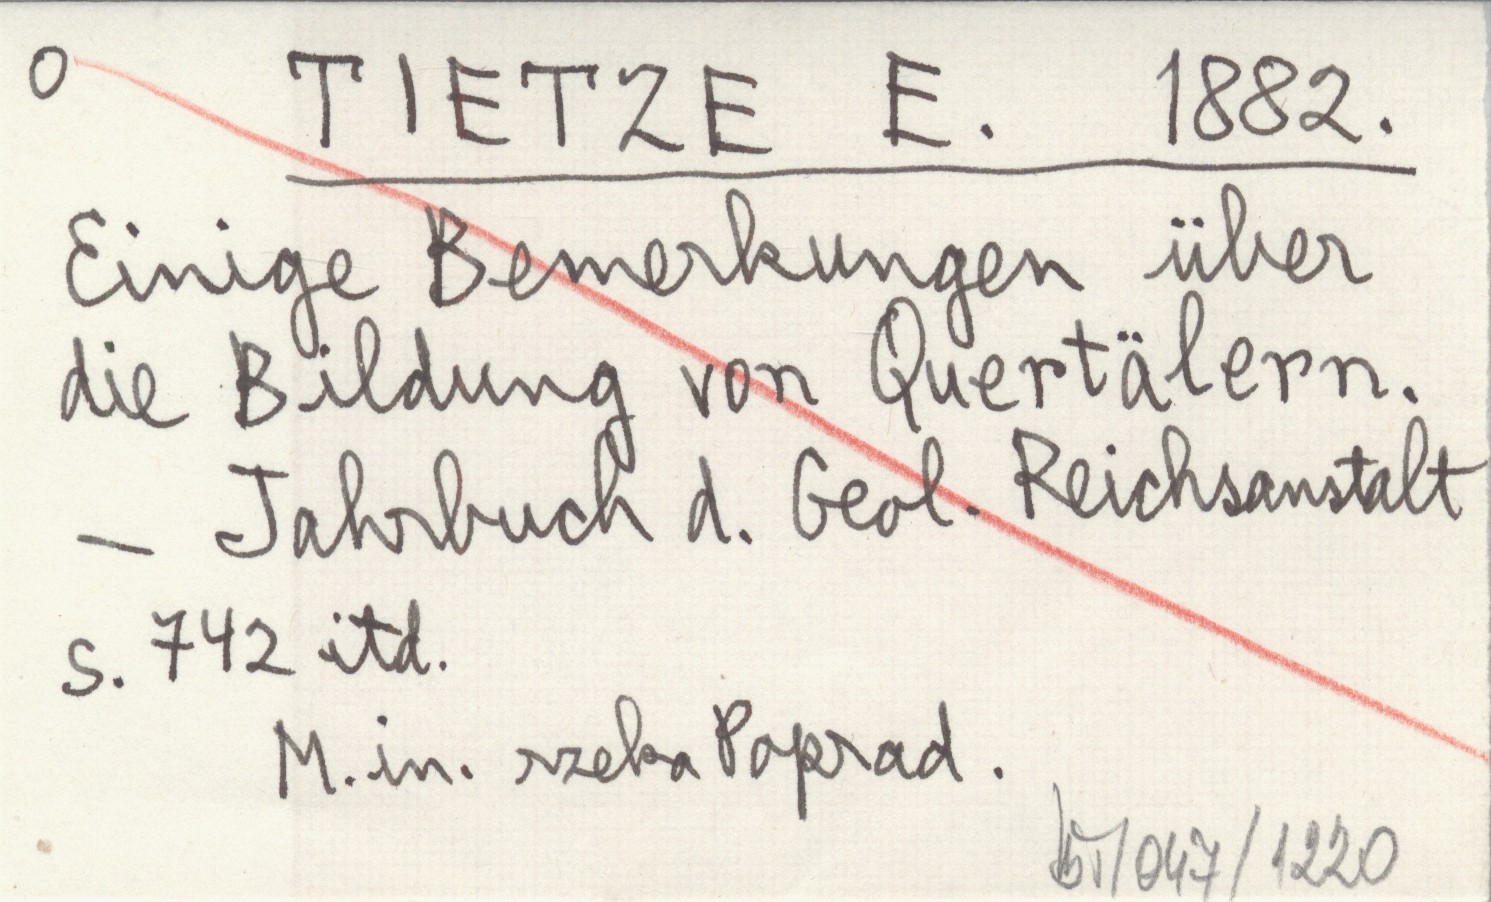 O TIETZE E. 1882.
Einige Bemerkungen über
die Bildung von Quertälern.
— Jahrbuch d. Geol. Reichsanstalt
s. 742 itd.
M. in. rzeka Poprad.
/047/1220